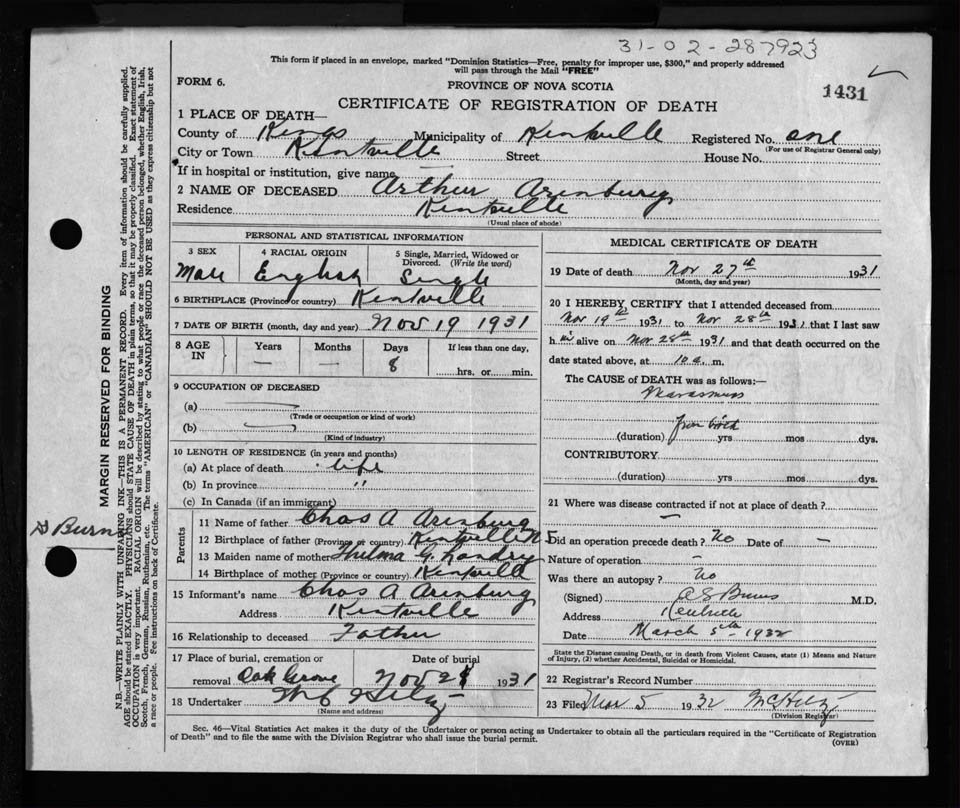 31-02-287923
This form if placed in an envelope, marked "Dominion Statistics—Free, penalty for improper use, $300," and properly addressed
will pass through the Mail "FREE"
FORM 6.
PROVINCE OF NOVA SCOTIA
1431
CERTIFICATE OF REGISTRATION OF DEATH
1 PLACE OF DEATH—
County of Kings Municipality of Kentville Registered No. one
(For use of Registrar General only)
City or Town Kentville Street House No.
If in hospital or institution, give name
2 NAME OF DECEASED Arthur Arenburg
Residence Kentville
(Usual place of abode)
PERSONAL AND STATISTICAL INFORMATION
3 SEX 4 RACIAL ORIGIN 5 Single, Married, Widowed or
Divorced. (Write the word)
Male English Single
6 BIRTHPLACE (Province or country) Kentville
7 DATE OF BIRTH (month, day and year) Nov 19 1931
8 AGE IN Years Months Days If less than one day,
— — 8 hrs. or min.
9 OCCUPATION OF DECEASED
(a)
(Trade or occupation or kind of work)
(b)
(Kind of industry)
10 LENGTH OF RESIDENCE (in years and months)
(a) At place of death life
(b) In province "
(c) In Canada (if an immigrant)
Parents
11 Name of father Chas A Arenburg
12 Birthplace of father (Province or country) Kentville N
13 Maiden name of mother Thelma G. Landry
14 Birthplace of mother (Province or country) Kentville
15 Informant's name Chas A Arenburg
Address Kentville
16 Relationship to deceased Father
17 Place of burial, cremation or Date of burial
removal Oak Grove Nov 28 1931
18 Undertaker
(Name and address)
MEDICAL CERTIFICATE OF DEATH
19 Date of death Nov 27th 1931
(Month, day and year)
20 I HEREBY CERTIFY that I attended deceased from
Nov 19th 1931 to Nov 28th 1931 that I last saw
h im alive on Nov 28th 1931 and that death occurred on the
date stated above, at 10 a. m.
The CAUSE OF DEATH was as follows:—
Marasmus
from birth
(duration) yrs mos dys.
CONTRIBUTORY
(duration) yrs mos dys.
21 Where was disease contracted if not at place of death?
—
Did an operation precede death? No Date of —
Nature of operation —
Was there an autopsy? No
(Signed) Burns M.D.
Address Kentville
Date March 5th 1932
State the Disease causing Death, or in death from Violent Causes, state (1) Means and Nature
of Injury, (2) whether Accidental, Suicidal or Homicidal.
22 Registrar's Record Number
23 Filed Mar 5 1932
(Division Registrar)
Sec. 46—Vital Statistics Act makes it the duty of the Undertaker or person acting as Undertaker to obtain all the particulars required in the "Certificate of Registration
of Death" and to file the same with the Division Registrar who shall issue the burial permit.
(OVER)
MARGIN RESERVED FOR BINDING
N.B.—WRITE PLAINLY WITH UNFADING INK—THIS IS A PERMANENT RECORD. Every item of information should be carefully supplied.
AGE should be stated EXACTLY. PHYSICIANS should STATE CAUSE OF DEATH in plain terms, so that it may be properly classified. Exact statement of
OCCUPATION is very important. RACIAL ORIGIN will be described by stating to what people or race the deceased person belonged, whether English, Irish,
Scotch, French, German, Russian, Ruthenian, etc. The terms "AMERICAN" or "CANADIAN" SHOULD NOT BE USED as they express citizenship but not
a race or people. See instructions on back of Certificate.
Burn